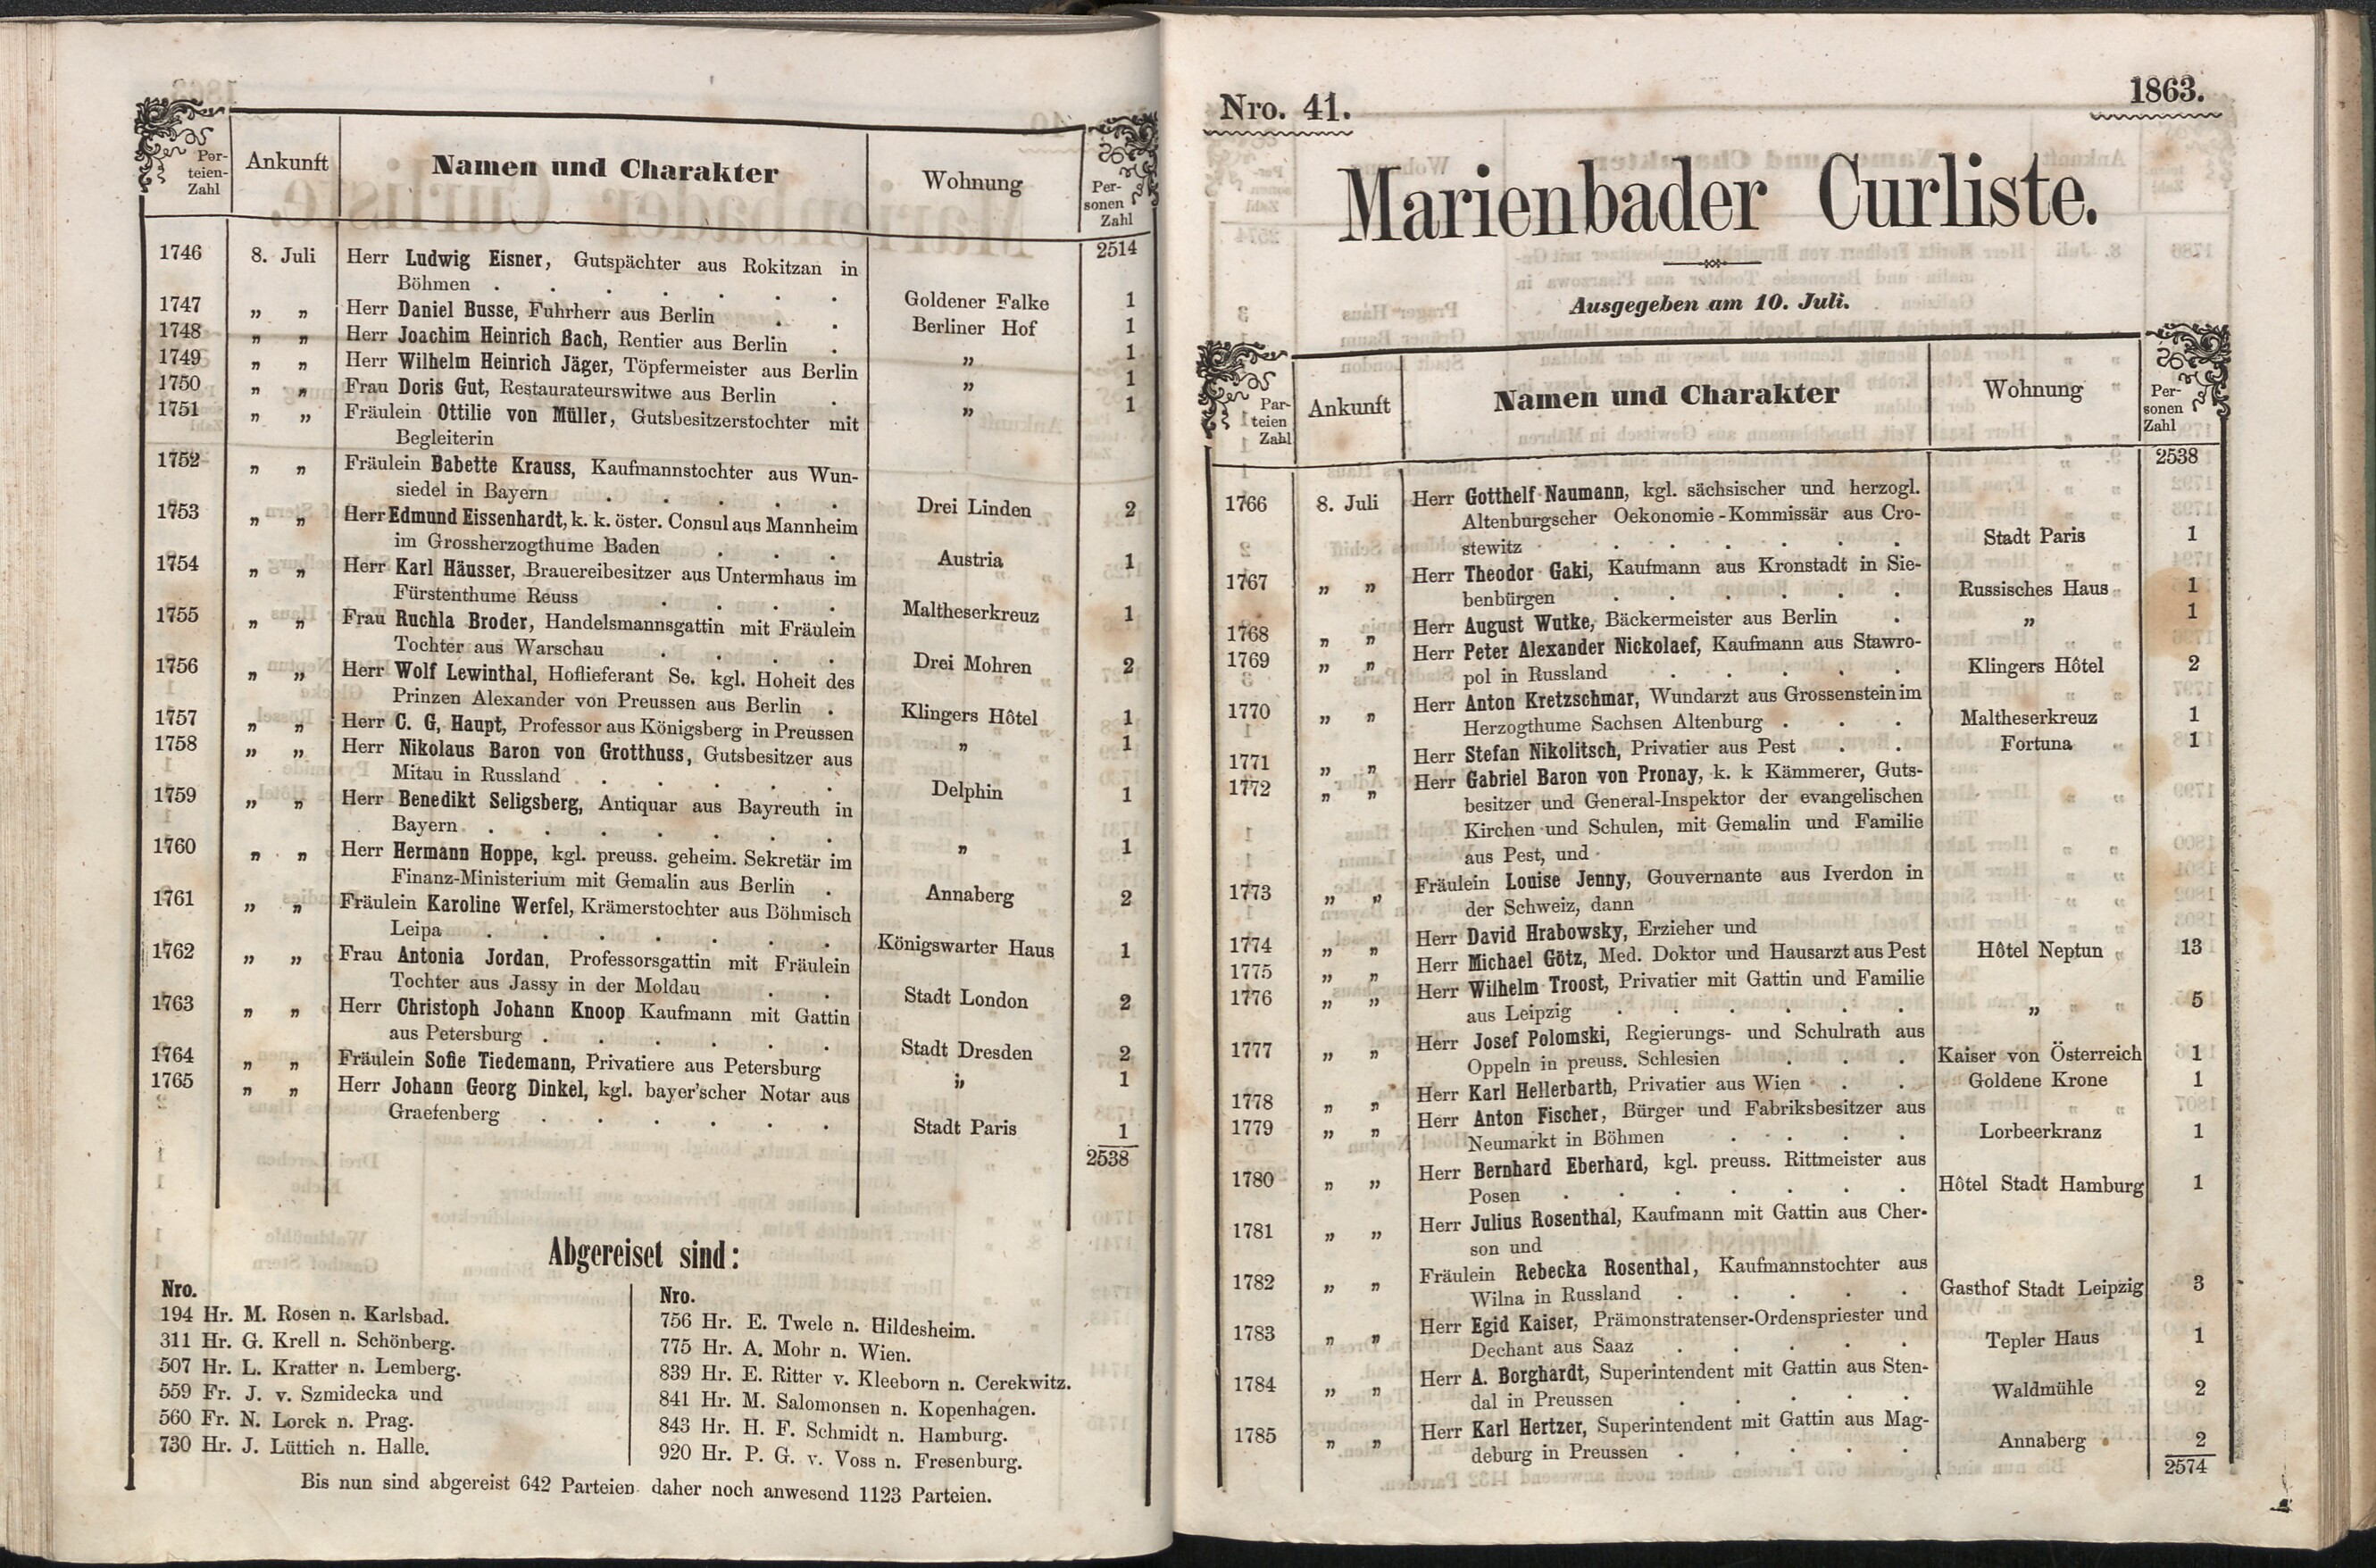 Par-
teien-
Zahl
Ankunft
Namen und Charakter
Wohnung
Per-
sonen
Zahl
2514
1746 8. Juli Herr Ludwig Eisner, Gutspächter aus Rokitzan in
Böhmen . . . . . . . Goldener Falke 1
1747 „ „ Herr Daniel Busse, Fuhrherr aus Berlin . . Berliner Hof 1
1748 „ „ Herr Joachim Heinrich Bach, Rentier aus Berlin . „ 1
1749 „ „ Herr Wilhelm Heinrich Jäger, Töpfermeister aus Berlin „ 1
1750 „ „ Frau Doris Gut, Restaurateurswitwe aus Berlin . „ 1
1751 „ „ Fräulein Ottilie von Müller, Gutsbesitzerstochter mit
Begleiterin
1752 „ „ Fräulein Babette Krauss, Kaufmannstochter aus Wun-
siedel in Bayern . . . . . Drei Linden 2
1753 „ „ Herr Edmund Eissenhardt, k. k. öster. Consul aus Mannheim
im Grossherzogthume Baden . . . Austria 1
1754 „ „ Herr Karl Häusser, Brauereibesitzer aus Untermhaus im
Fürstenthume Reuss . . . . Maltheserkreuz 1
1755 „ „ Frau Ruchla Broder, Handelsmannsgattin mit Fräulein
Tochter aus Warschau . . . . Drei Mohren 2
1756 „ „ Herr Wolf Lewinthal, Hoflieferant Se. kgl. Hoheit des
Prinzen Alexander von Preussen aus Berlin . Klingers Hôtel 1
1757 „ „ Herr C. G, Haupt, Professor aus Königsberg in Preussen „ 1
1758 „ „ Herr Nikolaus Baron von Grotthuss, Gutsbesitzer aus
Mitau in Russland . . . . . Delphin 1
1759 „ „ Herr Benedikt Seligsberg, Antiquar aus Bayreuth in
Bayern . . . . . . . „ 1
1760 „ „ Herr Hermann Hoppe, kgl. preuss. geheim. Sekretär im
Finanz-Ministerium mit Gemalin aus Berlin . Annaberg 2
1761 „ „ Fräulein Karoline Werfel, Krämerstochter aus Böhmisch
Leipa . . . . . . . Königswarter Haus 1
1762 „ „ Frau Antonia Jordan, Professorsgattin mit Fräulein
Tochter aus Jassy in der Moldau . . Stadt London 2
1763 „ „ Herr Christoph Johann Knoop Kaufmann mit Gattin
aus Petersburg . . . . . . Stadt Dresden 2
1764 „ „ Fräulein Sofie Tiedemann, Privatiere aus Petersburg „ 1
1765 „ „ Herr Johann Georg Dinkel, kgl. bayer'scher Notar aus
Graefenberg . . . . . . Stadt Paris 1
2538
Abgereiset sind:
Nro.
194 Hr. M. Rosen n. Karlsbad.
311 Hr. G. Krell n. Schönberg.
507 Hr. L. Kratter n. Lemberg.
559 Fr. J. v. Szmidecka und
560 Fr. N. Lorck n. Prag.
730 Hr. J. Lüttich n. Halle.
Nro.
756 Hr. E. Twele n. Hildesheim.
775 Hr. A. Mohr n. Wien.
839 Hr. E. Ritter v. Kleeborn n. Cerekwitz.
841 Hr. M. Salomonsen n. Kopenhagen.
843 Hr. H. F. Schmidt n. Hamburg.
920 Hr. P. G. v. Voss n. Fresenburg.
Bis nun sind abgereist 642 Parteien daher noch anwesend 1123 Parteien.
Nro. 41.
1863.
Marienbader Curliste.
Ausgegeben am 10. Juli.
Par-
teien
Zahl
Ankunft
Namen und Charakter
Wohnung
Per-
sonen
Zahl
2538
1766 8. Juli Herr Gotthelf Naumann, kgl. sächsischer und herzogl.
Altenburgscher Oekonomie-Kommissär aus Cro-
stewitz . . . . . . . Stadt Paris 1
1767 „ „ Herr Theodor Gaki, Kaufmann aus Kronstadt in Sie-
benbürgen . . . . . . Russisches Haus 1
1768 „ „ Herr August Wutke, Bäckermeister aus Berlin . „ 1
1769 „ „ Herr Peter Alexander Nickolaef, Kaufmann aus Stawro-
pol in Russland . . . . . Klingers Hôtel 2
1770 „ „ Herr Anton Kretzschmar, Wundarzt aus Grossenstein im
Herzogthume Sachsen Altenburg . . . Maltheserkreuz 1
1771 „ „ Herr Stefan Nikolitsch, Privatier aus Pest . . Fortuna 1
1772 „ „ Herr Gabriel Baron von Pronay, k. k Kämmerer, Guts-
besitzer und General-Inspektor der evangelischen
Kirchen und Schulen, mit Gemalin und Familie
aus Pest, und
1773 „ „ Fräulein Louise Jenny, Gouvernante aus Iverdon in
der Schweiz, dann
1774 „ „ Herr David Hrabowsky, Erzieher und
1775 „ „ Herr Michael Götz, Med. Doktor und Hausarzt aus Pest Hôtel Neptun 13
1776 „ „ Herr Wilhelm Troost, Privatier mit Gattin und Familie
aus Leipzig . . . . . . „ 5
1777 „ „ Herr Josef Polomski, Regierungs- und Schulrath aus
Oppeln in preuss. Schlesien . . . Kaiser von Österreich 1
1778 „ „ Herr Karl Hellerbarth, Privatier aus Wien . . Goldene Krone 1
1779 „ „ Herr Anton Fischer, Bürger und Fabriksbesitzer aus
Neumarkt in Böhmen . . . . Lorbeerkranz 1
1780 „ „ Herr Bernhard Eberhard, kgl. preuss. Rittmeister aus
Posen . . . . . . . Hôtel Stadt Hamburg 1
1781 „ „ Herr Julius Rosenthal, Kaufmann mit Gattin aus Cher-
son und
1782 „ „ Fräulein Rebecka Rosenthal, Kaufmannstochter aus
Wilna in Russland . . . . . Gasthof Stadt Leipzig 3
1783 „ „ Herr Egid Kaiser, Prämonstratenser-Ordenspriester und
Dechant aus Saaz . . . . . Tepler Haus 1
1784 „ „ Herr A. Borghardt, Superintendent mit Gattin aus Sten-
dal in Preussen . . . . . Waldmühle 2
1785 „ „ Herr Karl Hertzer, Superintendent mit Gattin aus Mag-
deburg in Preussen . . . . . Annaberg 2
2574